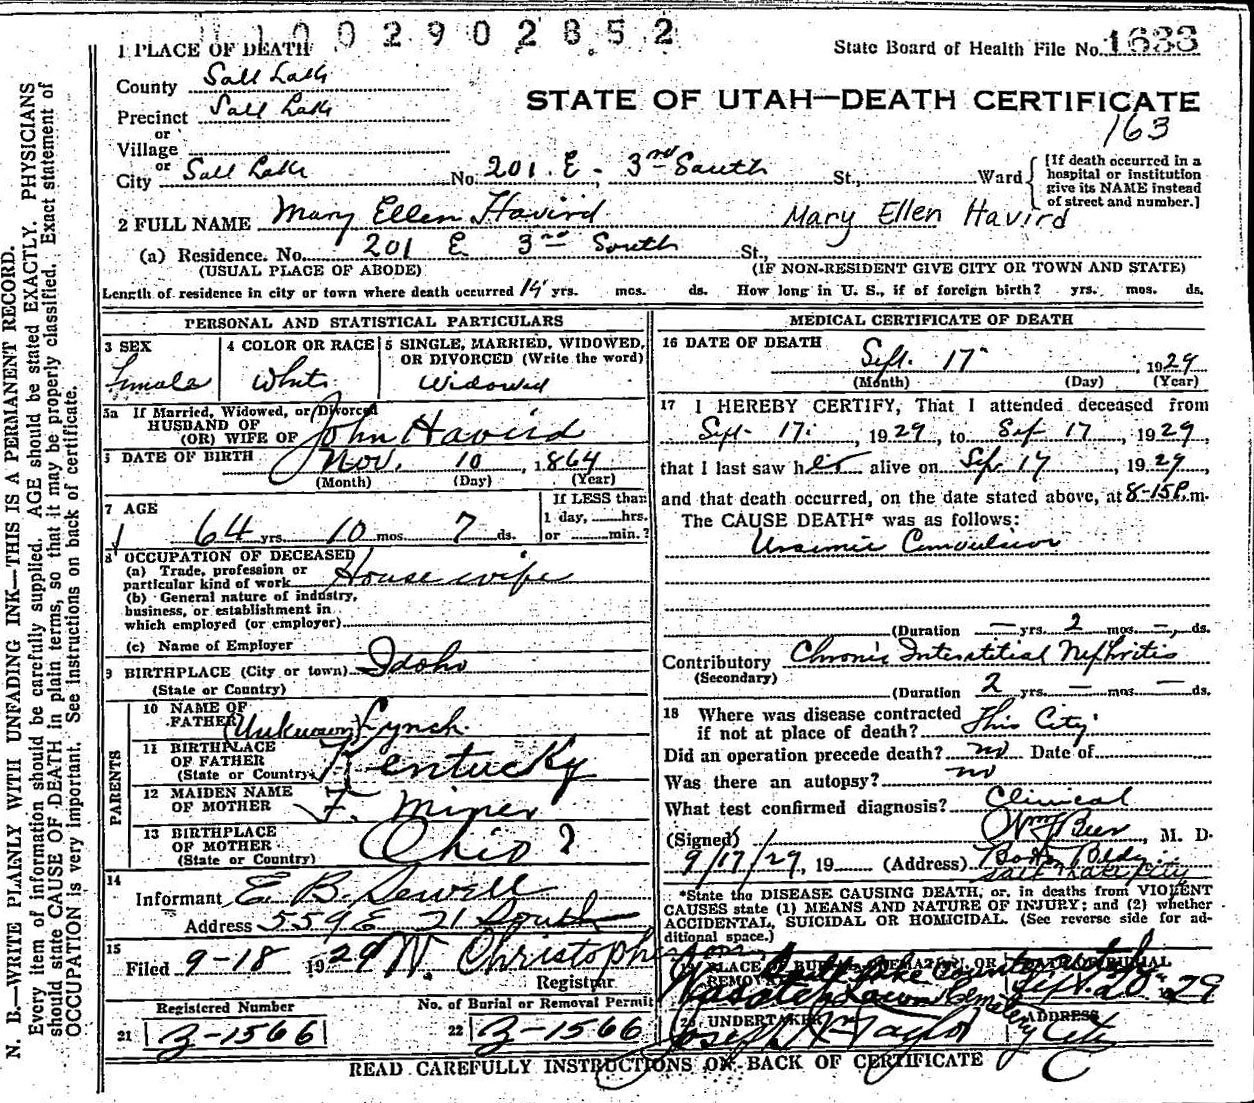 1 0 0 2 9 0 2 8 5 2
1 PLACE OF DEATH
State Board of Health File No. 1633
County Salt Lake
STATE OF UTAH—DEATH CERTIFICATE
Precinct Salt Lake
163
or
Village
or
City Salt Lake No. 201 E. 3rd South St., Ward
[If death occurred in a hospital or institution give its NAME instead of street and number.]
2 FULL NAME Mary Ellen Havird Mary Ellen Havird
(a) Residence. No. 201 E 3rd South St.,
(USUAL PLACE OF ABODE) (IF NON-RESIDENT GIVE CITY OR TOWN AND STATE)
Length of residence in city or town where death occurred 14 yrs. mos. ds. How long in U. S., if of foreign birth? yrs. mos. ds.
PERSONAL AND STATISTICAL PARTICULARS
3 SEX
Female
4 COLOR OR RACE
White
5 SINGLE, MARRIED, WIDOWED, OR DIVORCED (Write the word)
Widowed
5a If Married, Widowed, or Divorced
HUSBAND OF
(OR) WIFE OF John Havird
6 DATE OF BIRTH Nov. 10, 1864
(Month) (Day) (Year)
7 AGE
64 yrs. 10 mos. 7 ds.
If LESS than
1 day, hrs.
or min.?
8 OCCUPATION OF DECEASED
(a) Trade, profession or
particular kind of work House wife
(b) General nature of industry,
business, or establishment in
which employed (or employer)
(c) Name of Employer
9 BIRTHPLACE (City or town) Idaho
(State or Country)
PARENTS
10 NAME OF
FATHER (Unknown) Lynch
11 BIRTHPLACE
OF FATHER
(State or Country) Kentucky
12 MAIDEN NAME
OF MOTHER F. Miner
13 BIRTHPLACE
OF MOTHER
(State or Country) Ohio ?
14
Informant E. B. Sewell
Address 559 E 21 South
15
Filed 9-18 1929 W. Christoph
Registrar
Registered Number
21 B-1566
No. of Burial or Removal Permit
22 B-1566
MEDICAL CERTIFICATE OF DEATH
16 DATE OF DEATH
Sept. 17, 1929
(Month) (Day) (Year)
17 I HEREBY CERTIFY, That I attended deceased from
Sept. 17, 1929, to Sep 17, 1929,
that I last saw her alive on Sep. 17, 1929,
and that death occurred, on the date stated above, at 8-15P.m.
The CAUSE DEATH* was as follows:
Uraemic Convulsion
(Duration — yrs. 2 mos. — ds.
Contributory Chronic Interstitial Nephritis
(Secondary)
(Duration 2 yrs. — mos. — ds.
18 Where was disease contracted
if not at place of death? This City
Did an operation precede death? no Date of
Was there an autopsy? no
What test confirmed diagnosis? Clinical
(Signed) Wm J Beer, M. D.
9/17/29, 19 (Address) Boston Bldg.
Salt Lake City
*State the DISEASE CAUSING DEATH, or, in deaths from VIOLENT
CAUSES state (1) MEANS AND NATURE OF INJURY; and (2) whether
ACCIDENTAL, SUICIDAL OR HOMICIDAL. (See reverse side for additional space.)
19 PLACE OF BURIAL, CREMATION, OR REMOVAL
Salt Lake County Utah
Wasatch Lawn Cemetery
DATE OF BURIAL
Sept. 20 1929
20 UNDERTAKER
Joseph Wm Taylor
ADDRESS
City
READ CAREFULLY INSTRUCTIONS ON BACK OF CERTIFICATE
N. B.—WRITE PLAINLY WITH UNFADING INK—THIS IS A PERMANENT RECORD.
Every item of information should be carefully supplied. AGE should be stated EXACTLY. PHYSICIANS
should state CAUSE OF DEATH in plain terms, so that it may be properly classified. Exact statement of
OCCUPATION is very important. See instructions on back of certificate.